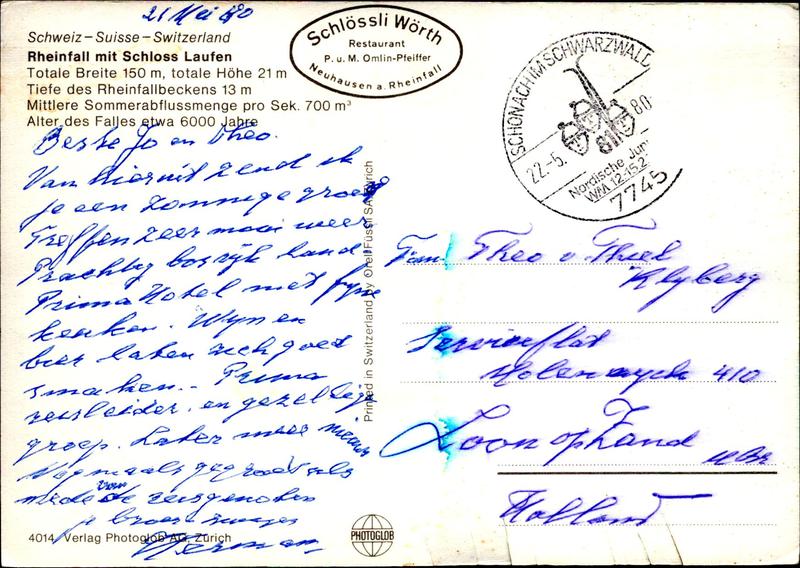 21 Mei 80
Schweiz – Suisse – Switzerland
Rheinfall mit Schloss Laufen
Totale Breite 150 m, totale Höhe 21 m
Tiefe des Rheinfallbeckens 13 m
Mittlere Sommerabflussmenge pro Sek. 700 m³
Alter des Falles etwa 6000 Jahre
Schlössli Wörth
Restaurant
P. u. M. Omlin-Pfeiffer
Neuhausen a. Rheinfall
SCHONACH IM SCHWARZWALD
22.-5. 80-
Nordische Jun
WM 12.-15.2
7745
Beste Jo en Theo.
Van hieruit zend ik
je een zonnige groet
Treffen zeer mooi weer
Prachtig bosrijk land
Prima Hotel met fijne
keuken. Wijn en
bier laten zich goed
smaken.. Prima
reisleider en gezellige
groep. Later meer nieuws
Nogmaals gegroet als
mede van de reisgenoten
je broer zwager
Herman
Fam Theo v Thiel
Klyberg
Serviceflat
Molenwyck 410
Loon op Zand
NBr
Holland
Printed in Switzerland by Orell Füssli SA, Zürich
4014 Verlag Photoglob AG, Zürich
PHOTOGLOB